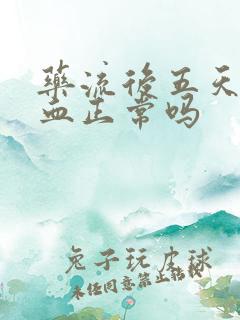 药流后五天
血正常吗
兔子玩皮球
未经同意禁止转载